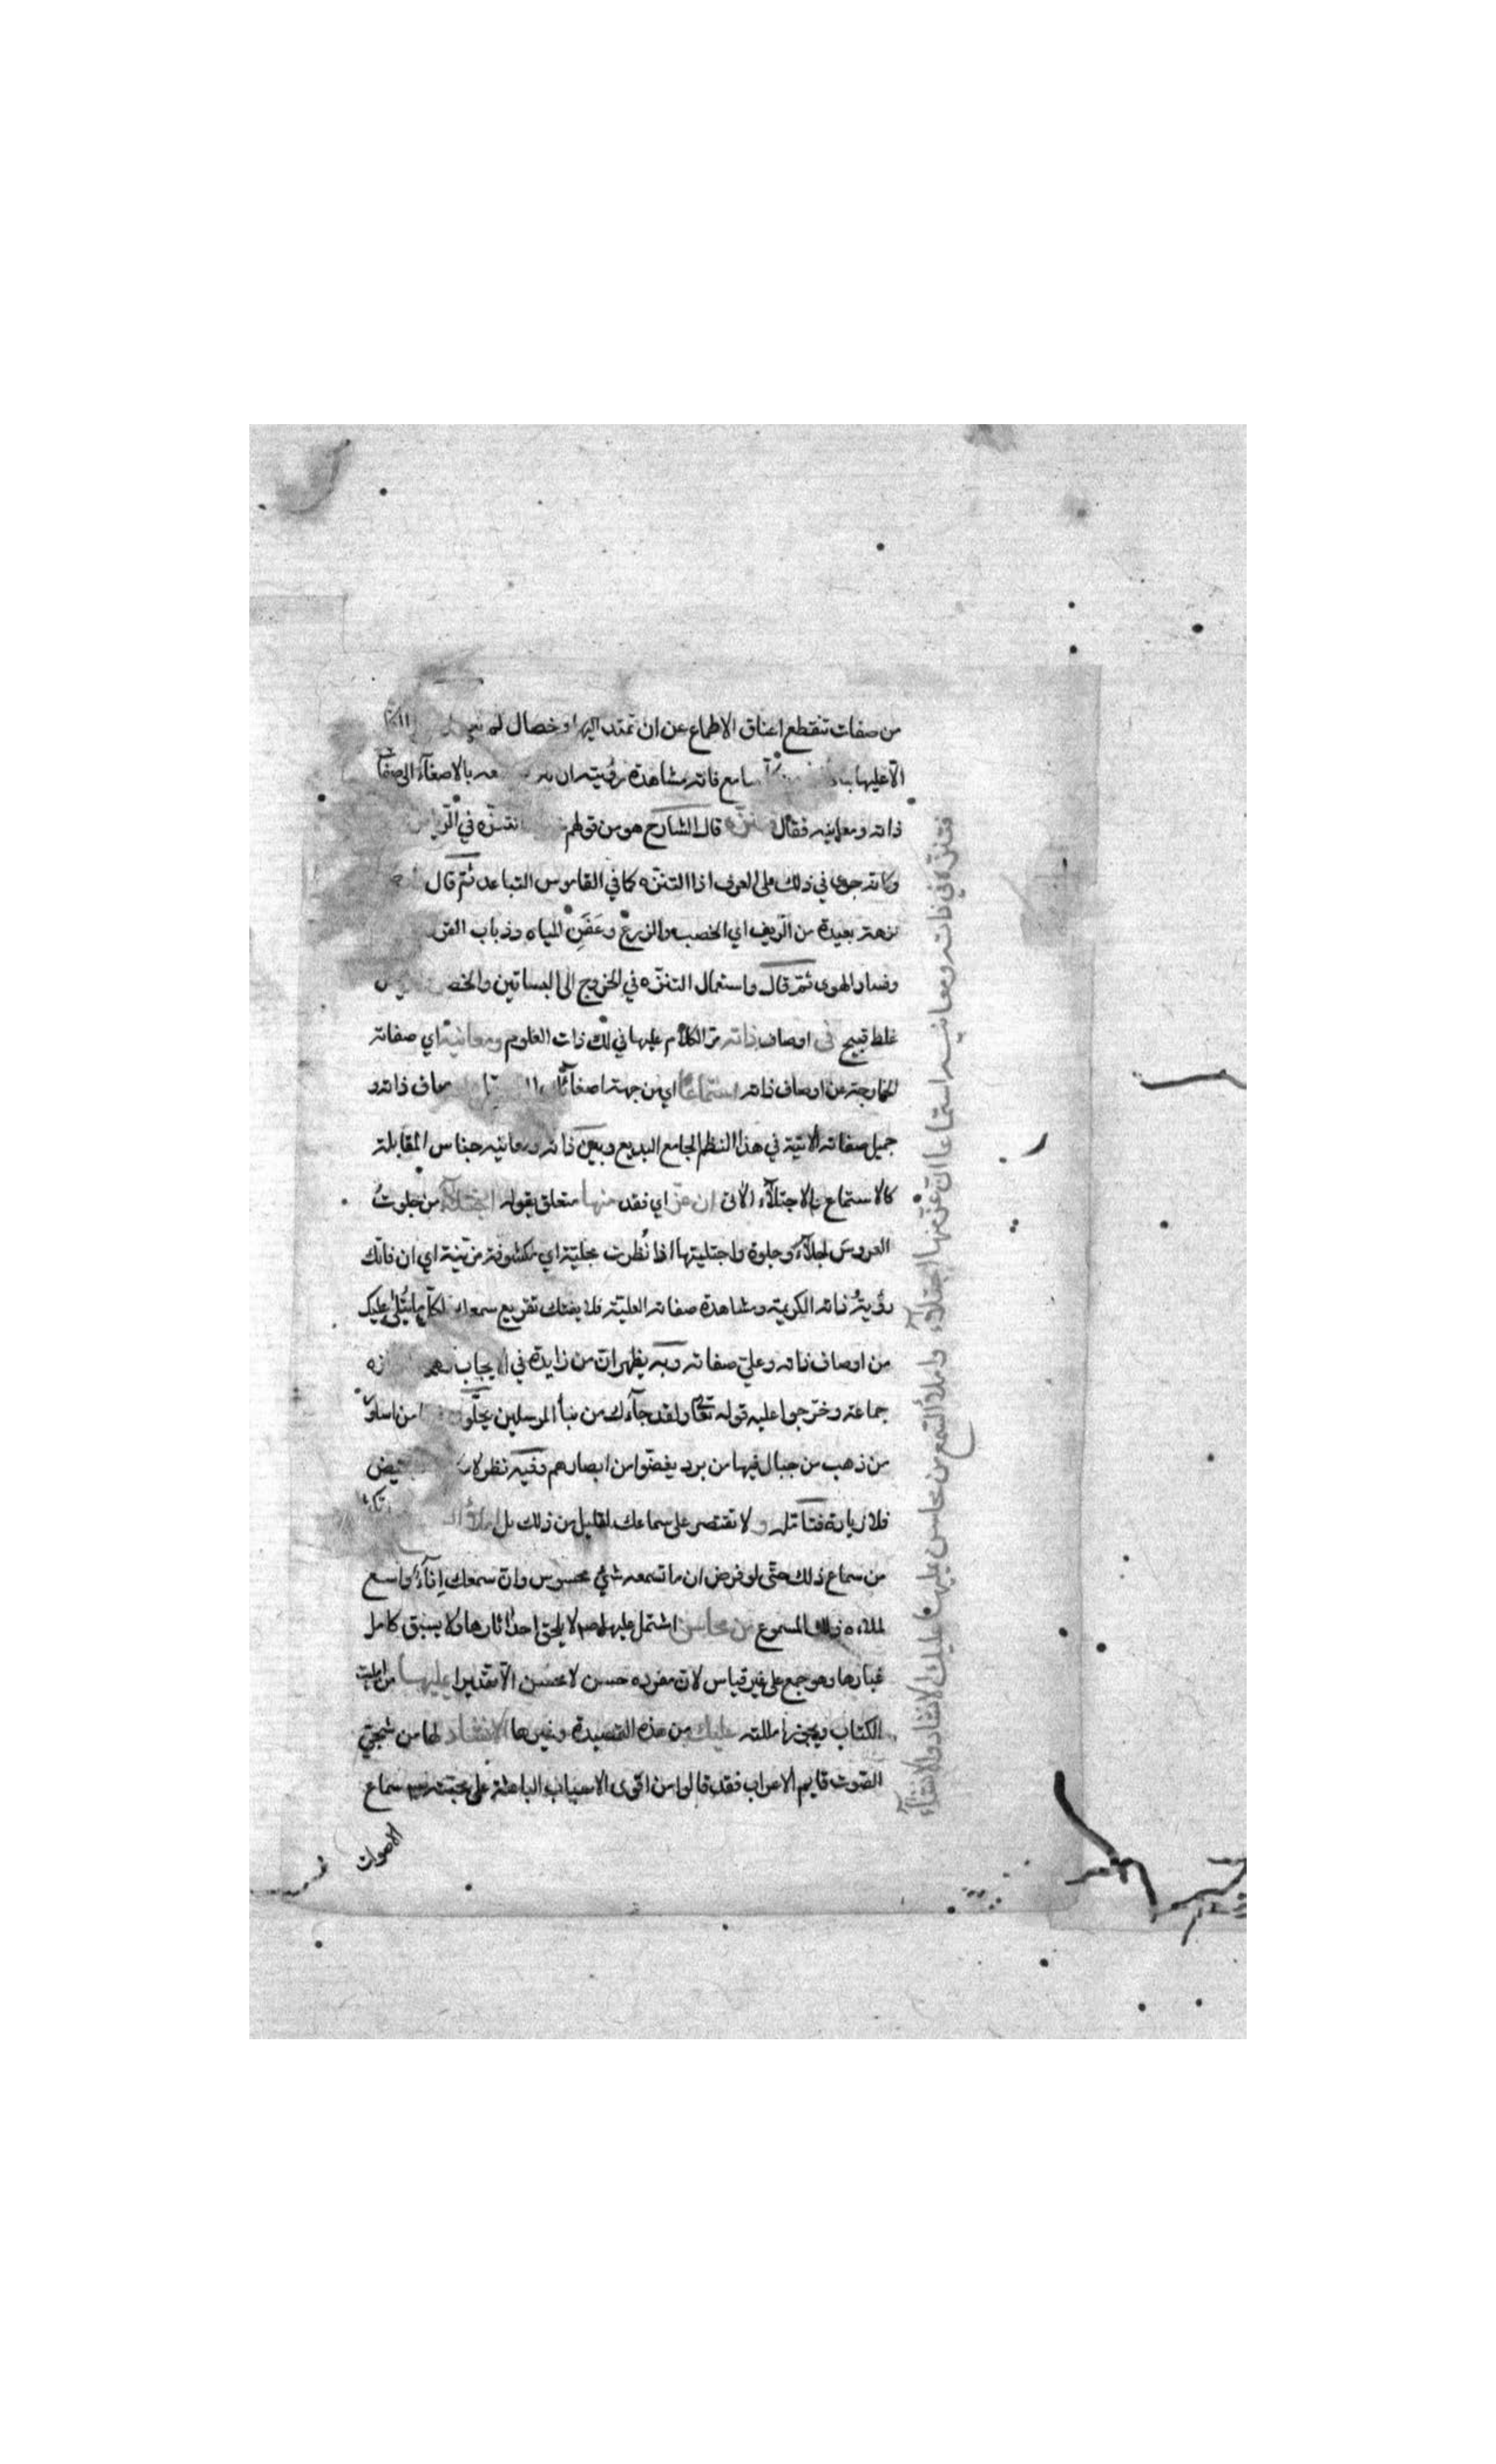 من صفات تنقطع اعناق الاطماع عن ان تمتد اليها وخصال لم
الا عليها سامع فاته مشاهدة رؤيته ان بالاصغاء الى صفات
ذاته ومعانيه فقال تنزه قال الشارح هو من قولهم نتنزه في الرياض
وكانه جرى في ذلك على العرف اذ التنزه كما في القاموس التباعد ثم قال
نزهة بعيدة من الريف اي الخصب والزرع وغمق المياه وذباب القرى
وفساد الهوى ثم قال واستعمال التنزه في الخروج الى البساتين والخضر
غلط قبيح في اوصاف ذاته مر الكلام عليها في لك ذات العلوم ومعانيه اي صفاته
الخارجة عن اوصاف ذاته استماعا اي من جهة اصغائك اوصاف ذاته و
جميل صفاته الاتية في هذا النظم الجامع البديع وبين ذاته ومعانيه جناس المقابلة
كالاستماع والاجتلاء الاتى ان عز اي فقد منها متعلق بقوله اجتلاء من جلوت
العروس اجلاء وجلوة واجتليتها اذا نظرت مجلية اي مكشوفة مزينة اي ان فاتك
رؤية ذاته الكريمة ومشاهدة صفاته العلية فلا يفتك تفريغ سمعك لكل ما يتلى عليك
من اوصاف ذاته وعلي صفاته وبه يظهر ان من زايدة في الايجاب
جماعة وخرجوا عليه قوله تعالى ولقد جاءك من نبأ المرسلين يحلون من اساور
من ذهب من جبال فيها من برد يغضوا من ابصارهم وفيه نظر
فلا زيادة فتامله و لا تقتصر على سماعك لقليل من ذلك بل املأ
من سماع ذلك حتى لو فرض ان ما تسمعه شئ محسوس وان سمعك اناء واسع
لملاه ذلك المسموع من محاسن اشتمل عليها لا يلحق احد اثارها ولا يسبق كامل
غبارها وهو جمع على غير قياس لان مفرده حسن لا محسن الا تقديرا يمليها من امليت
الكتاب ويجوز املله عليك من هذه القصيدة وغيرها الانشاد لها من شجي
الصوت قايم الاعراب فقد قالوا من اقوى الاسباب الباعثة على محبته سماع
الاصوات
فتنزه في ذاته ومعانيه استماعا ان عز منها اجتلاء واملأ السمع من محاسن يمليها عليك الانشاد والانشاء